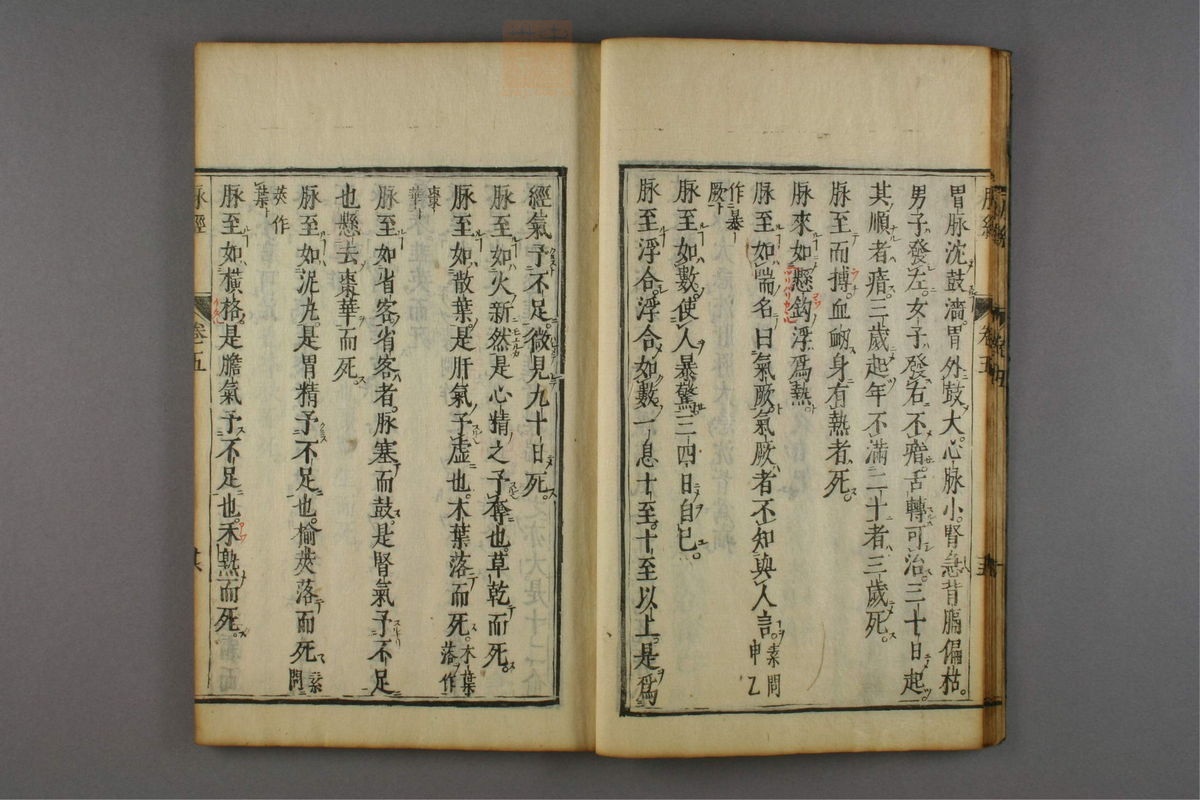 胃脉沈鼓濇胃外鼓大心脉小腎急皆膈偏枯
男子發左女子發右不瘖舌轉可治三十日起
其順者瘖三歲起年不滿二十者三歲死
脉至而搏血衂身有熱者死
脉來如懸鈎浮爲熱
脉至如喘名曰氣厥氣厥者不知與人言素問甲乙
作暴厥
脉至如數使人暴驚三四日自已
脉至浮合浮合如數一息十至十至以上是爲
經氣予不足微見九十日死
脉至如火新然是心精之予奪也草乾而死
脉至如散葉是肝氣予虛也木葉落而死木葉落作
棗華
脉至如省客省客者脉塞而鼓是腎氣予不足
也懸去棗華而死
脉至如泥丸是胃精予不足也楡莢落而死素問
莢作葉
脉至如橫格是膽氣予不足也禾熟而死
脉經 卷五